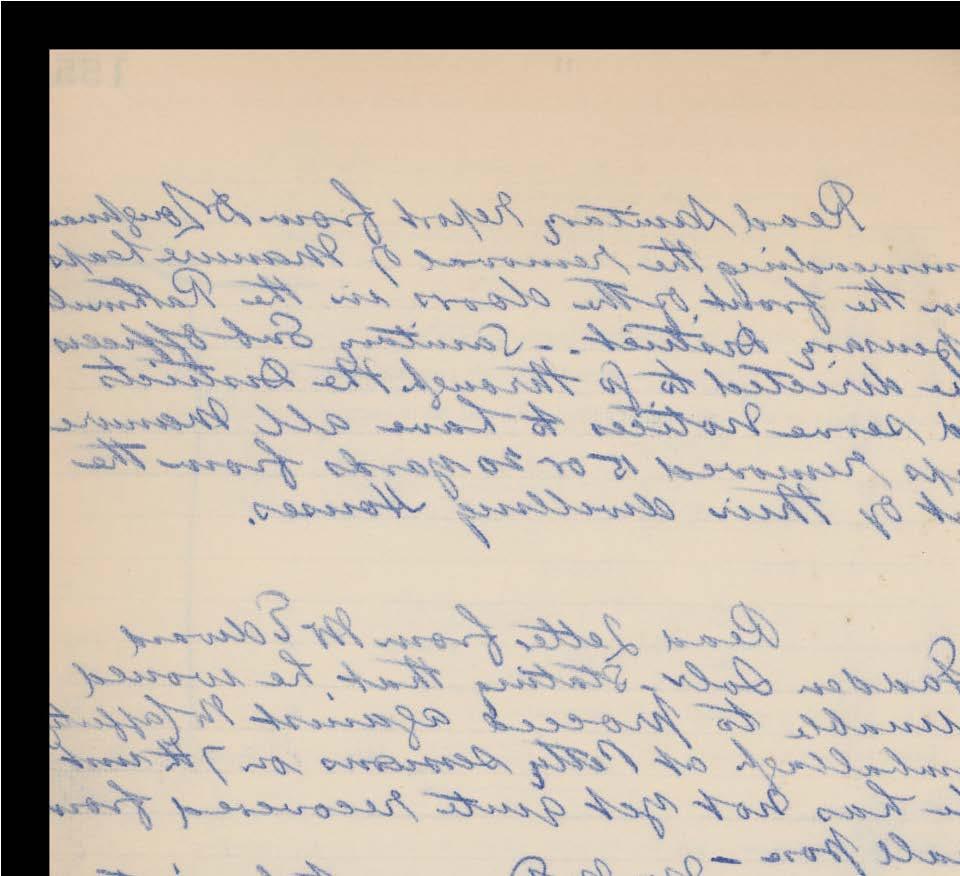 155
Read Sanitary report from Dr Loughnan
mmending the removal of Manure heaps
the front of the doors in the Rathmul
pensary District. - Sanitary Sub Officers
be directed to go through the Districts
d serve Notices to have all Manure
aps removed 15 or 20 yards from the
of their dwelling Houses.
Read Letter from Mr Edward
Solr, stating that he would
unable to proceed against
at Petty Sessions on 7th inst
he has not yet quite recovered from